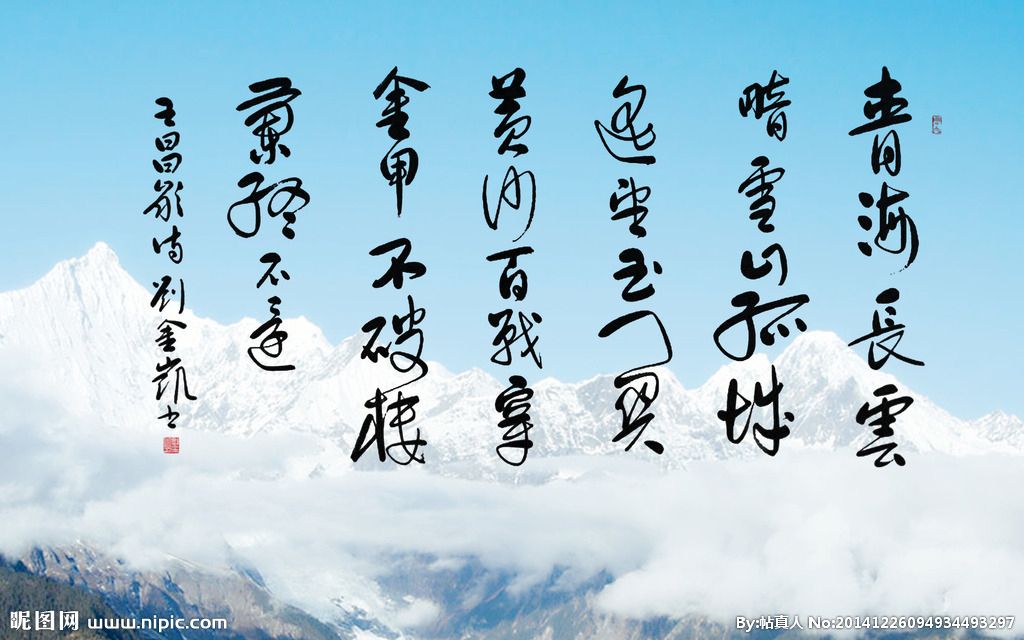 青海長雲
暗雪山孤城
遥望玉门關
黄沙百戰穿
金甲不破樓
蘭終不還
王昌齡诗 劉金凱书
昵图网 www.nipic.com
By:帖真人 No:20141226094934493297